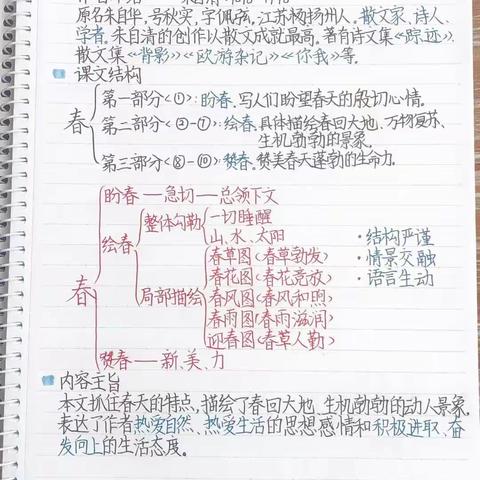 原名朱自华,号秋实,字佩弦,江苏扬州人,散文家、诗人、
学者,朱自清的创作以散文成就最高。著有诗文集《踪迹》、
散文集《背影》《欧游杂记》《你我》等.
课文结构
春
第一部分<①>:盼春.写人们盼望春天的殷切心情.
第二部分<②-⑦>:绘春.具体描绘春回大地、万物复苏、
生机勃勃的景象.
第三部分<⑧-⑩>:赞春.赞美春天蓬勃的生命力.
春
盼春——急切——总领下文
绘春
整体勾勒
一切睡醒
山、水、太阳
局部描绘
春草图(春草勃发)
春花图(春花竞放)
春风图(春风和煦)
春雨图(春雨滋润)
迎春图(春草人勤)
赞春——新、美、力
·结构严谨
·情景交融
·语言生动
内容主旨
本文抓住春天的特点,描绘了春回大地、生机勃勃的动人景象.
表达了作者热爱自然、热爱生活的思想感情和积极进取、奋
发向上的生活态度.